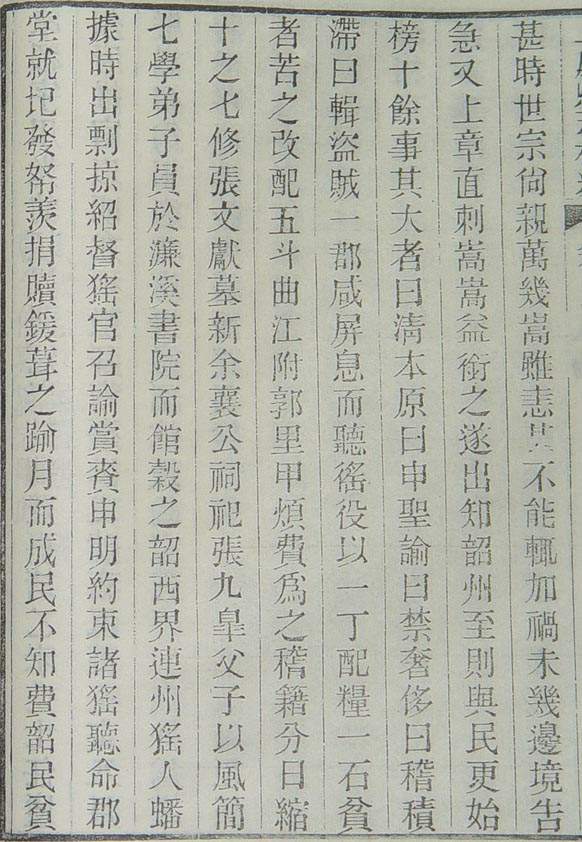 甚時世宗尙親萬幾嵩雖恚其不能輒加禍未幾邊境告
急又上章直刺嵩嵩益銜之遂出知韶州至則與民更始
榜十餘事其大者曰淸本原曰申聖諭曰禁奢侈曰稽積
滯曰輯盜賊一郡咸屏息而聽徭役以一丁配糧一石貧
者苦之改配五斗曲江附郭里甲煩費爲之稽籍分日縮
十之七修張文獻墓新余襄公祠祀張九皐父子以風簡
七學弟子員於濂溪書院而館穀之韶西界連州猺人蟠
據時出剽掠紹督猺官召諭賞賚申明約束諸猺聽命郡
堂就圮發帑羨捐贖鍰葺之踰月而成民不知費韶民貧